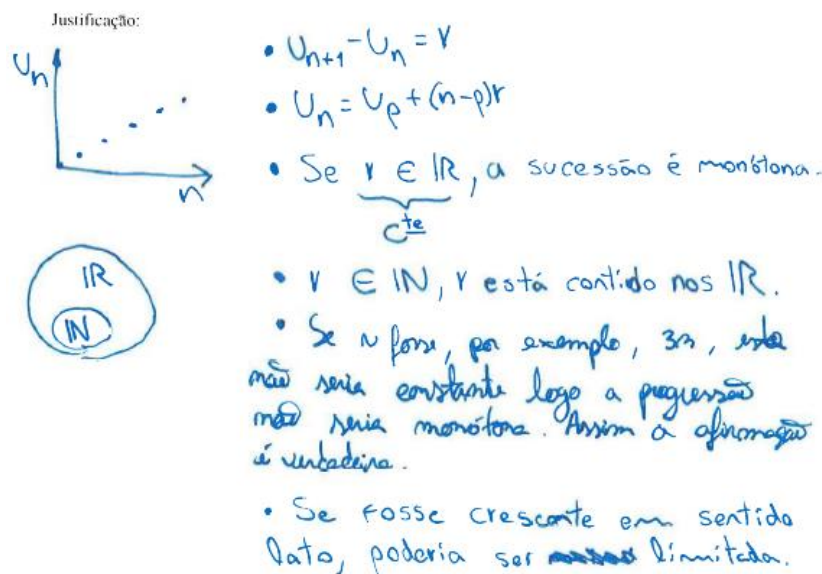 Justificação:
Un
n
• Un+1 - Un = r
• Un = Up + (n-p)r
• Se r ∈ IR, a sucessão é monótona.
Cte
IR
IN
• r ∈ IN, r está contido nos IR.
• Se r fosse, por exemplo, 3n, esta
não seria constante logo a progressão
não seria monótona. Assim a afirmação
é verdadeira.
• Se fosse crescente em sentido
lato, poderia ser limitada.